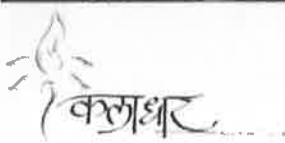 कलाधार